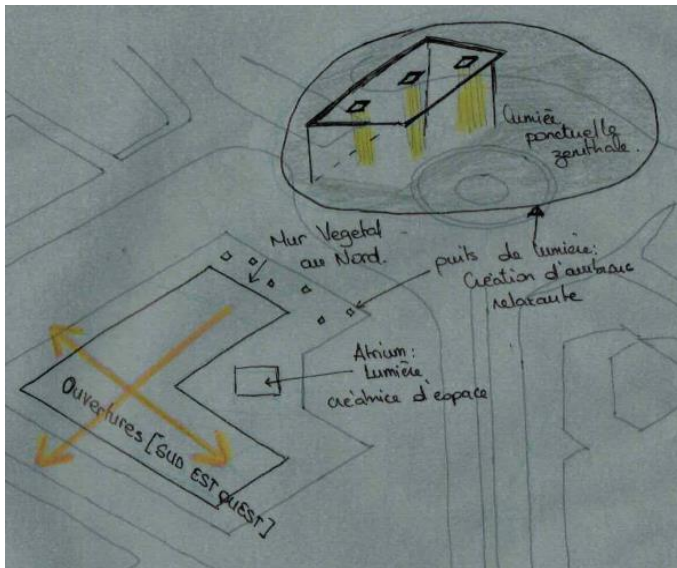 Lumière
ponctuelle
zenithale.
Mur Vegetal
au Nord.
puits de lumière:
Création d'ambiance
relaxante
Atrium:
Lumière
créatrice d'espace
Ouvertures [SUD EST OUEST]